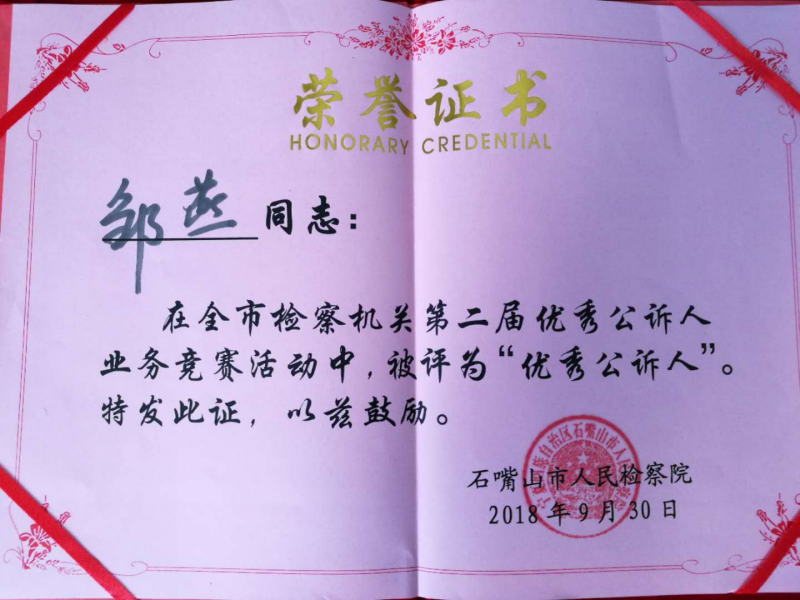 荣誉证书
HONORARY CREDENTIAL
邹燕同志：
在全市检察机关第二届优秀公诉人
业务竞赛活动中，被评为“优秀公诉人”。
特发此证，以兹鼓励。
石嘴山市人民检察院
2018年9月30日